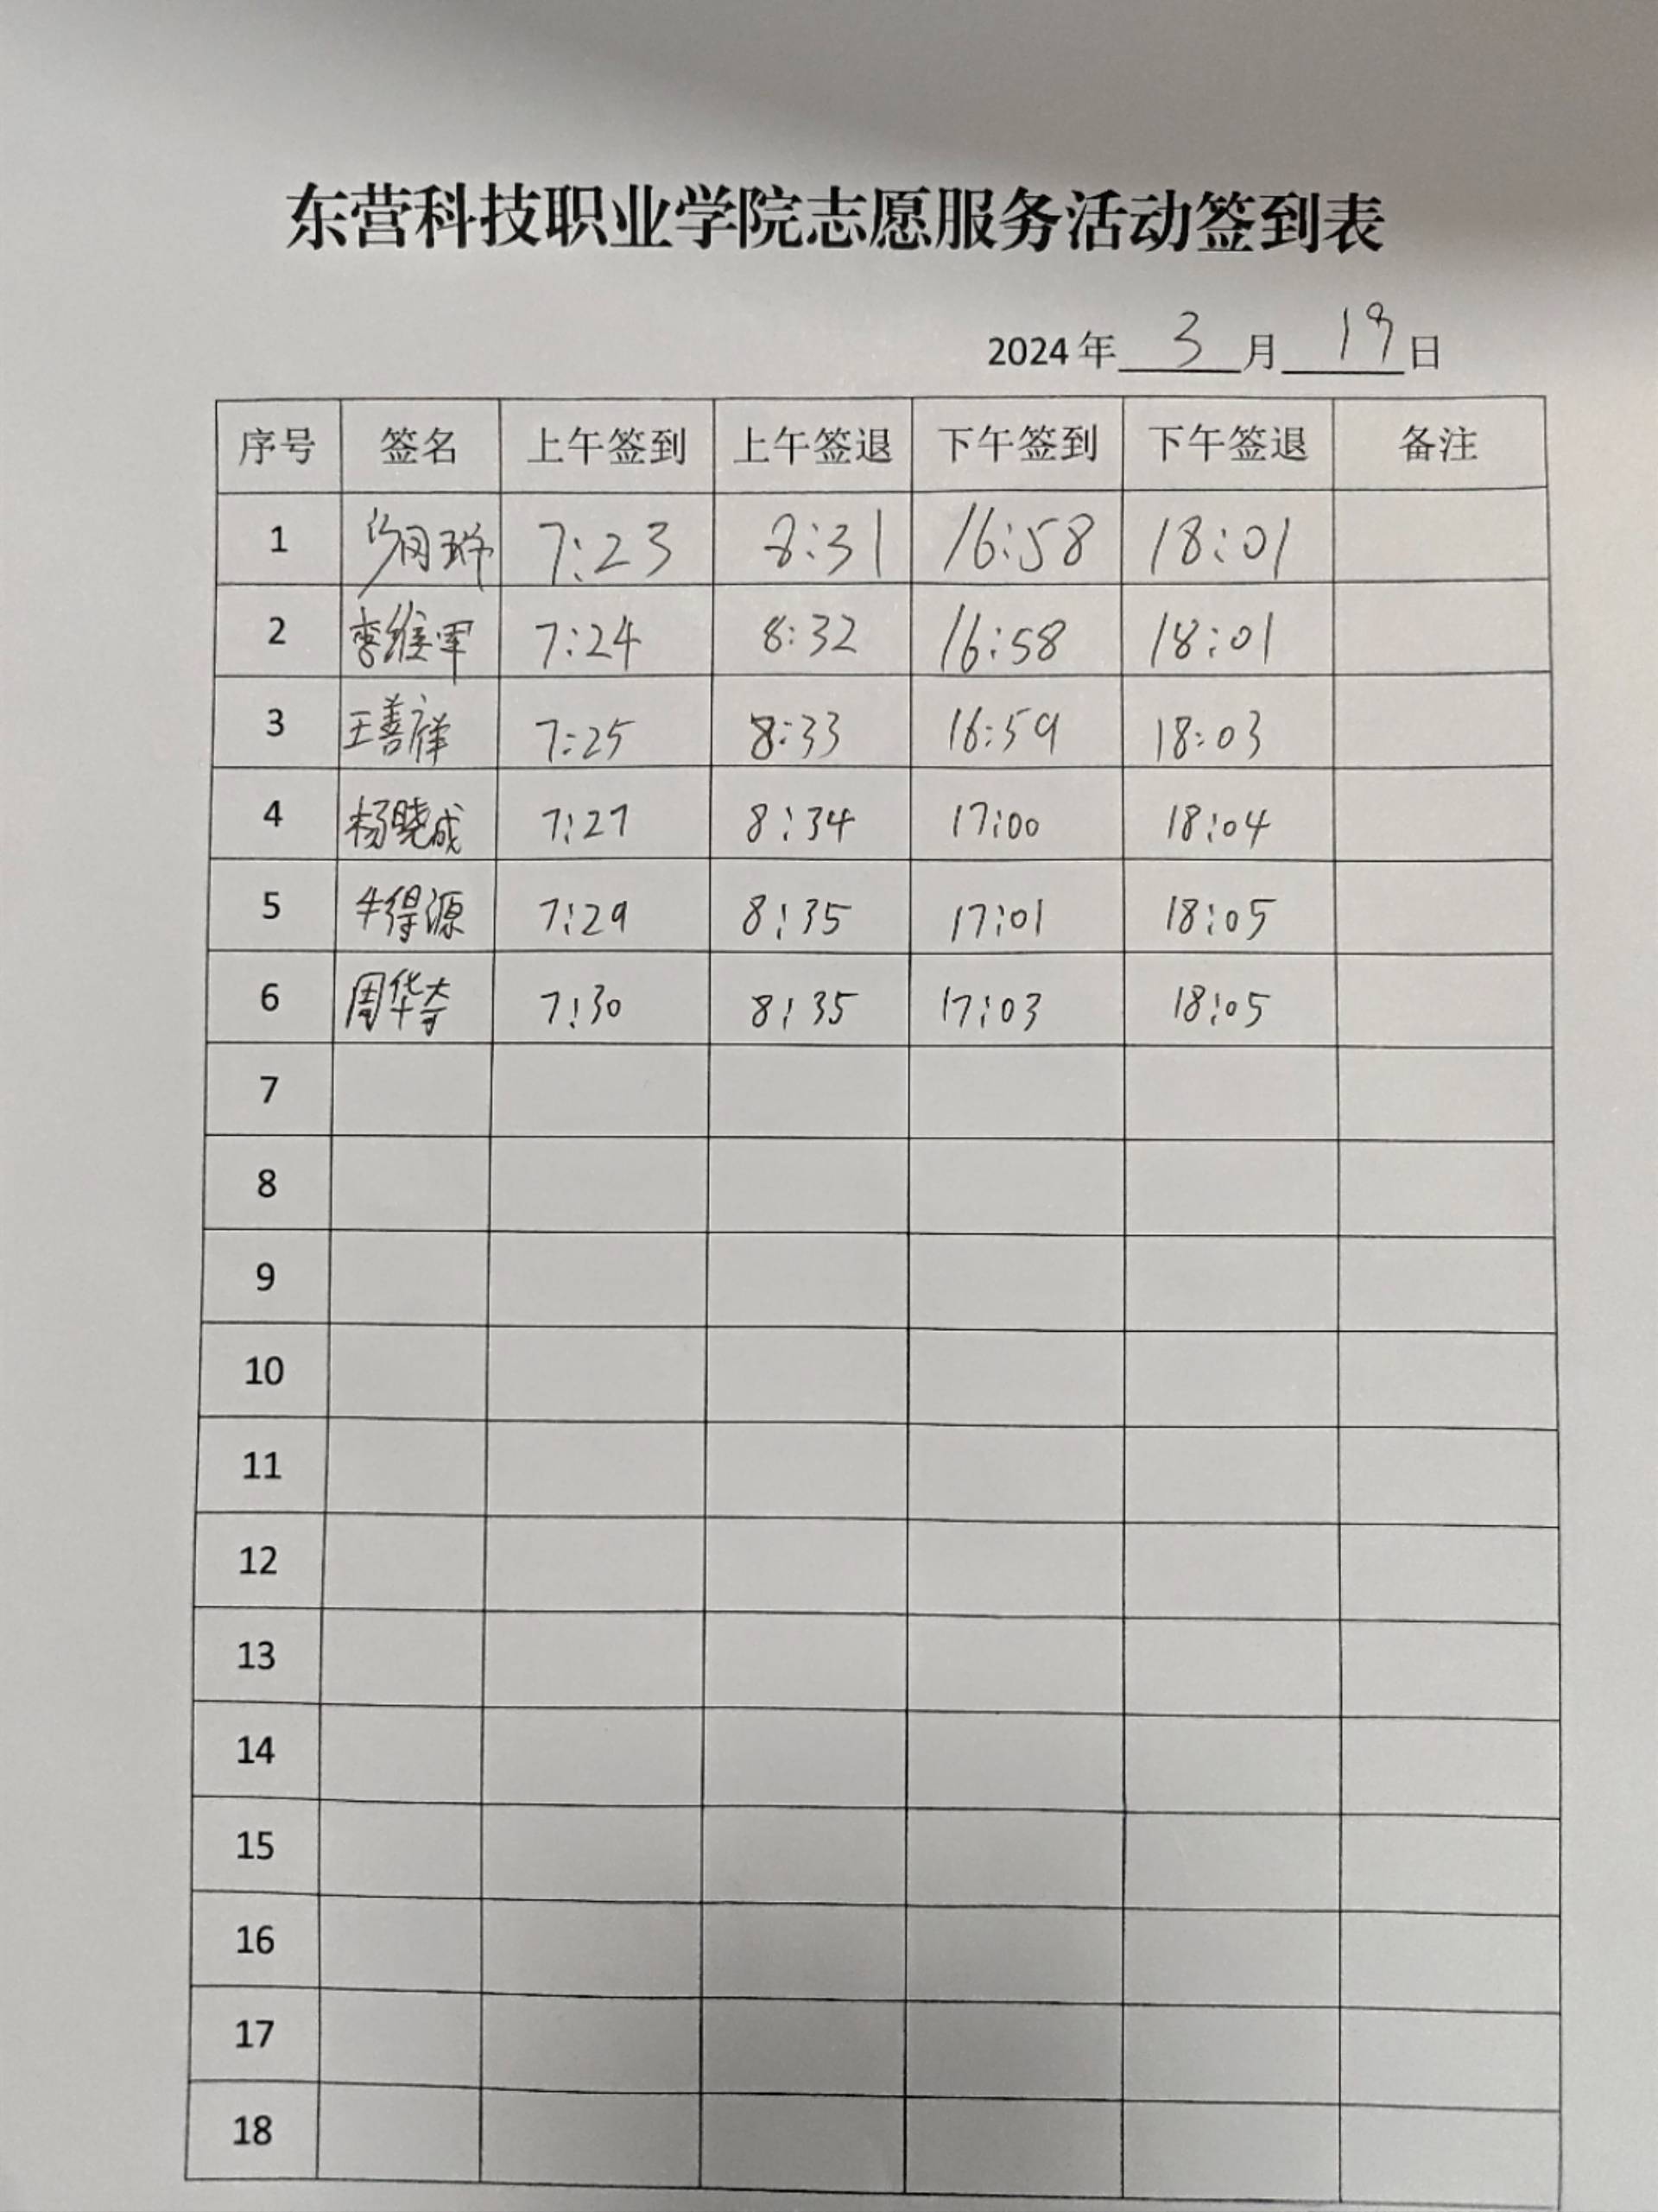 东营科技职业学院志愿服务活动签到表
2024年 3 月 19 日
序号 签名 上午签到 上午签退 下午签到 下午签退 备注
1 7:23 8:31 16:58 18:01
2 李维军 7:24 8:32 16:58 18:01
3 王善祥 7:25 8:33 16:59 18:03
4 杨晓成 7:27 8:34 17:00 18:04
5 牛得源 7:29 8:35 17:01 18:05
6 周华夸 7:30 8:35 17:03 18:05
7
8
9
10
11
12
13
14
15
16
17
18